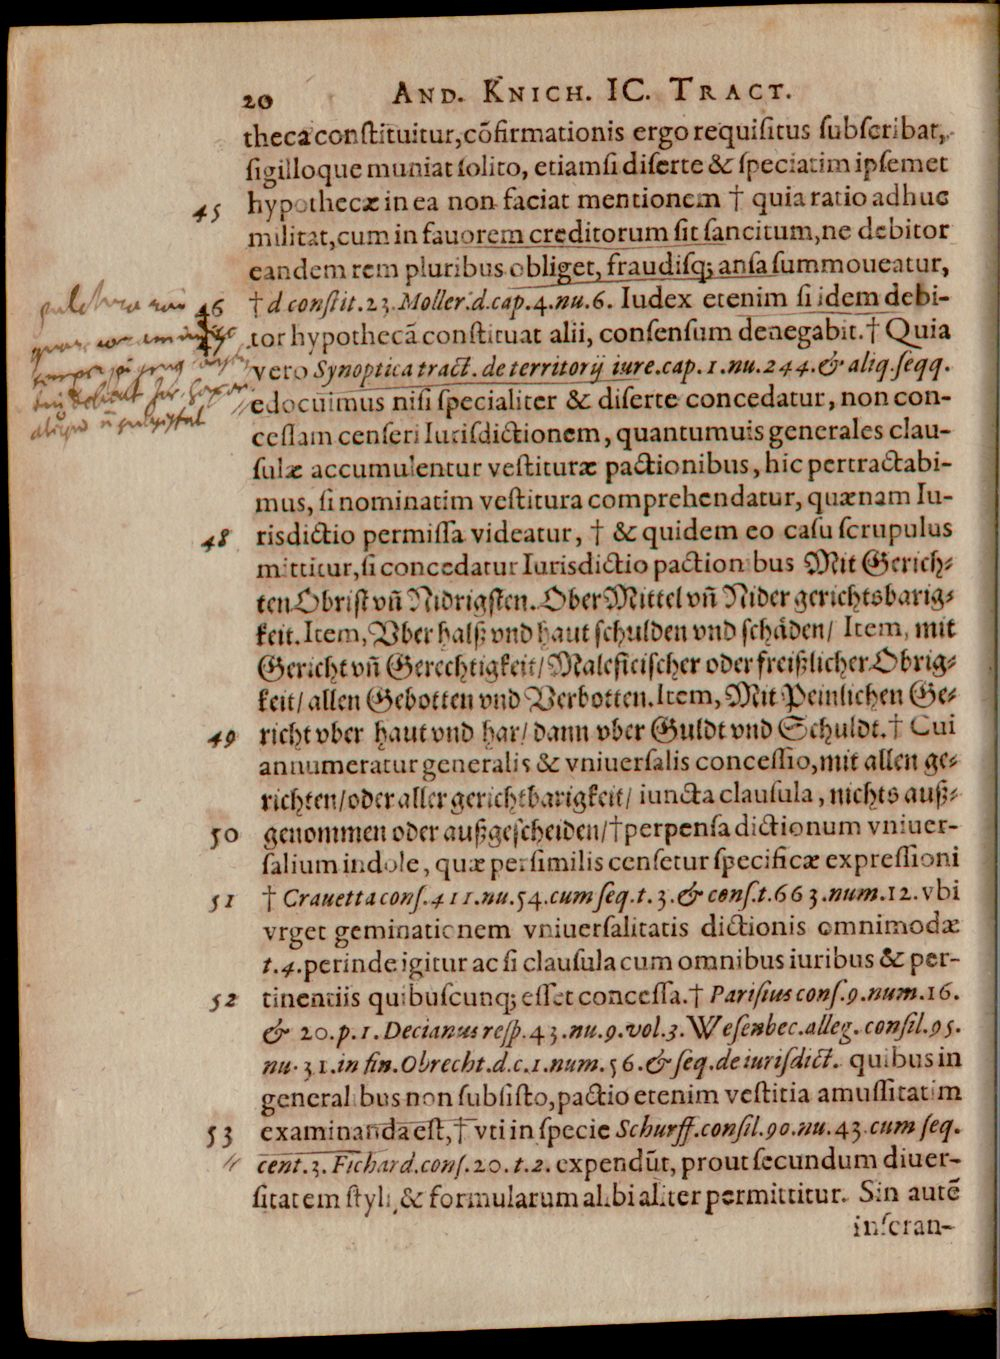 20 AND. KNICH. IC. TRACT.
theca constituitur, cõfirmationis ergo requisitus subscribat,
sigilloque muniat solito, etiamsi diserte & speciatim ipsemet
45 hypothecæ in ea non faciat mentionem † quia ratio adhuc
militat, cum in fauorem creditorum sit sancitum, ne debitor
eandem rem pluribus obliget, fraudisq; ansa summoueatur,
46 † d constit. 23. Moller. d. cap. 4. nu. 6. Iudex etenim si idem debi-
tor hypothecã constituat alii, consensum denegabit. † Quia
vero Synoptica tract. de territorij iure. cap. 1. nu. 244. & aliq. seqq.
edocuimus nisi specialiter & diserte concedatur, non con-
cessam censeri Iurisdictionem, quantumuis generales clau-
sulæ accumulentur vestituræ pactionibus, hic pertractabi-
mus, si nominatim vestitura comprehendatur, quænam Iu-
48 risdictio permissa videatur, † & quidem eo casu scrupulus
mittitur, si concedatur Iurisdictio pactionibus Mit Gerich-
ten Obrist vñ Nidrigsten. Ober Mittel vñ Nider gerichtsbarig-
keit. Item, Vber halß vnd haut schulden vnd schäden/ Item, mit
Gericht vñ Gerechtigkeit/ Maleficischer oder freißlicher Obrig-
keit/ allen Gebotten vnd Verbotten. Item, Mit Peinlichen Ge-
49 richt vber haut vnd har/ dann vber Guldt vnd Schuldt. † Cui
annumeratur generalis & vniuersalis concessio, mit allen ge-
richten/ oder aller gerichtbarigkeit/ iuncta clausula, nichts auß-
50 genommen oder außgescheiden/ † perpensa dictionum vniuer-
salium indole, quæ persimilis censetur specificæ expressioni
51 † Crauetta cons. 411. nu. 54. cum seq. t. 3. & cons. t. 663. num. 12. vbi
vrget geminationem vniuersalitatis dictionis omnimodæ
t. 4. perinde igitur ac si clausula cum omnibus iuribus & per-
52 tinentiis quibuscunq; esset concessa. † Parisius cons. 9. num. 16.
& 20. p. 1. Decianus resp. 43. nu. 9. vol. 3. Wesenbec. alleg. consil. 95.
nu. 31. in fin. Obrecht. d. c. 1. num. 56. & seq. de iurisdict. quibus in
generalibus non subsisto, pactio etenim vestitia amussitatim
53 examinanda est, † vti in specie Schurff. consil. 90. nu. 43. cum seq.
cent. 3. Fichard. cons. 20. t. 2. expendũt, prout secundum diuer-
sitatem styli, & formularum alibi aliter permittitur. Sin autẽ
inscran-